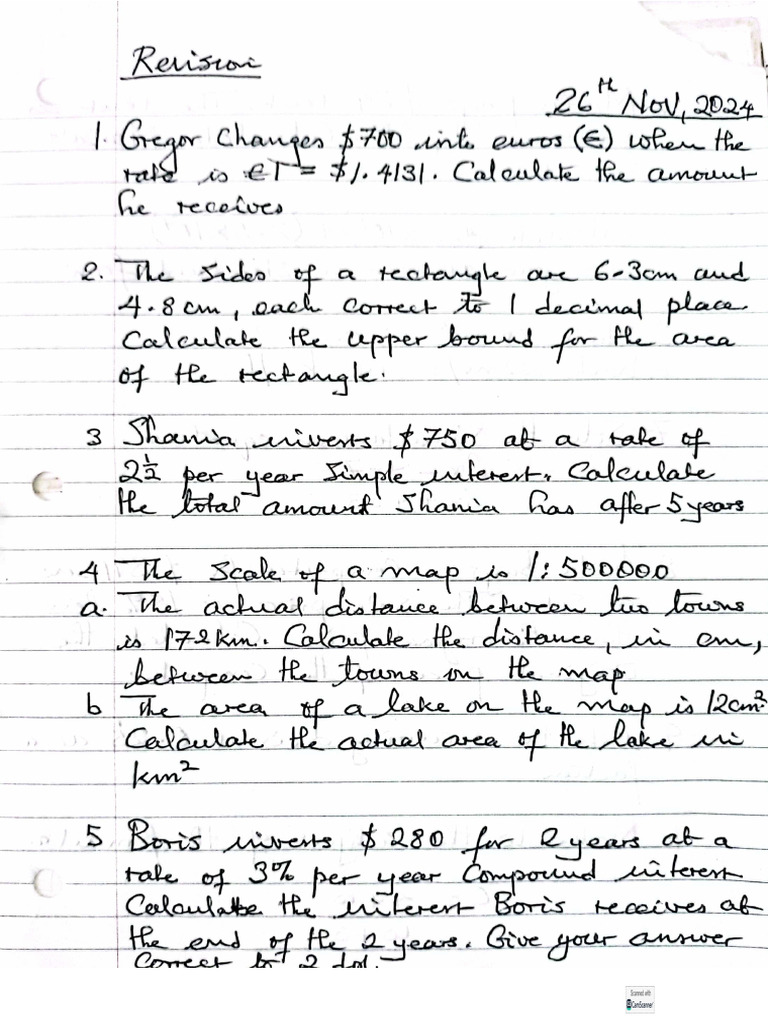 Revision
26th Nov, 2024
1. Gregor Changes $700 into euros (€) when the
rate is €1 = $1.4131. Calculate the amount
he receives
2. The sides of a rectangle are 6.3cm and
4.8cm, each correct to 1 decimal place
Calculate the upper bound for the area
of the rectangle.
3 Shania invests $750 at a rate of
2½ per year Simple interest. Calculate
the total amount Shania has after 5 years
4 The Scale of a map is 1:500000
a. The actual distance between two towns
is 172km. Calculate the distance, in cm,
between the towns on the map
b The area of a lake on the map is 12cm².
Calculate the actual area of the lake in
km²
5 Boris invests $280 for 2 years at a
rate of 3% per year Compound interest
Calculate the interest Boris receives at
the end of the 2 years. Give your answer
Correct to 2
Scanned with
CamScanner